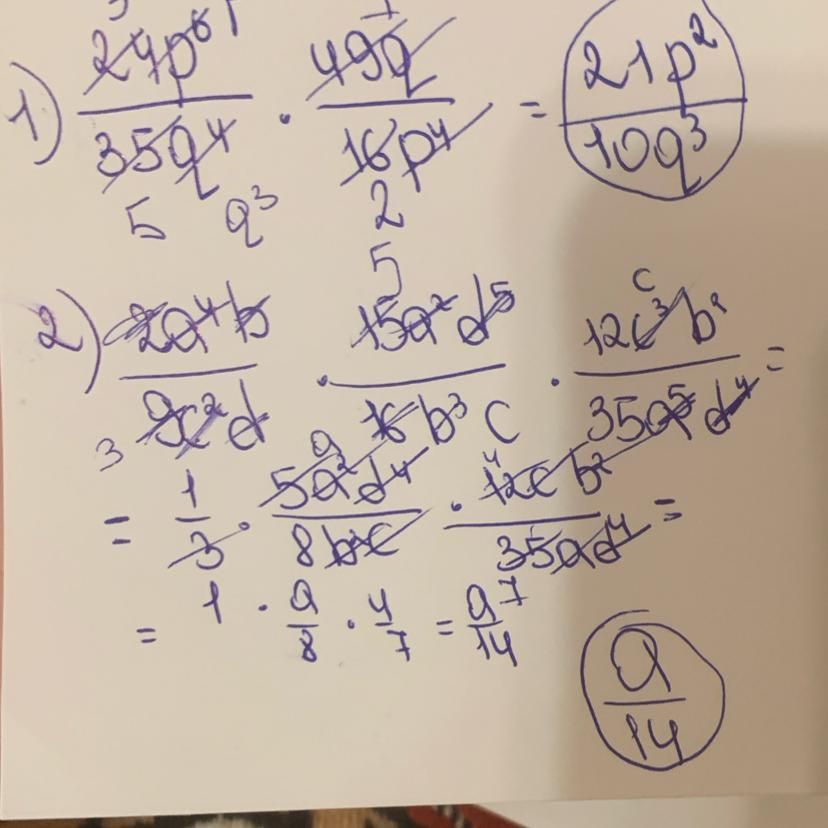 1) 24p⁶/35q⁴ · 49q/16p⁴ = 21p²/10q³
5 q³ 2
5 c
2) 2a⁴b/9c²d · 15a²d⁵/16b³c · 12c³b²/35a⁵d⁴ =
3 a 4
= 1/3 · 5a²d⁴/8b²c · 12cb²/35ad⁴ =
7
= 1 · a/8 · 4/7 = a/14
a/14